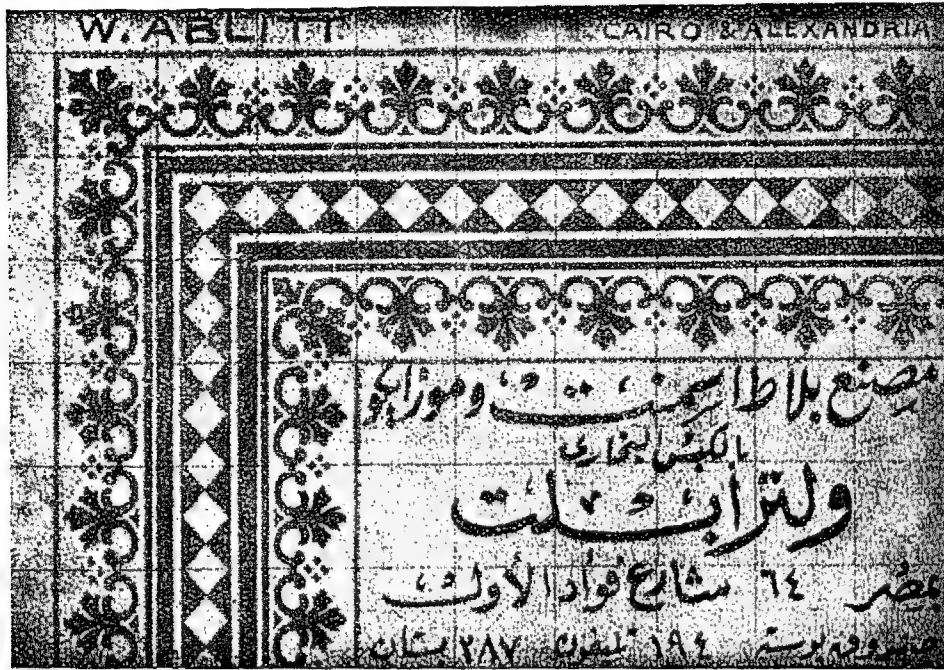 W. ABLITT. CAIRO & ALEXANDRIA
مصنع بلاط اسمنت وموزايكو
بالكبس البخارى
ولتر ابلت
مصر ٦٤ شارع فؤاد الأول
صندوق بوسته ١٩٤ تليفون ٢٨٧ بستان